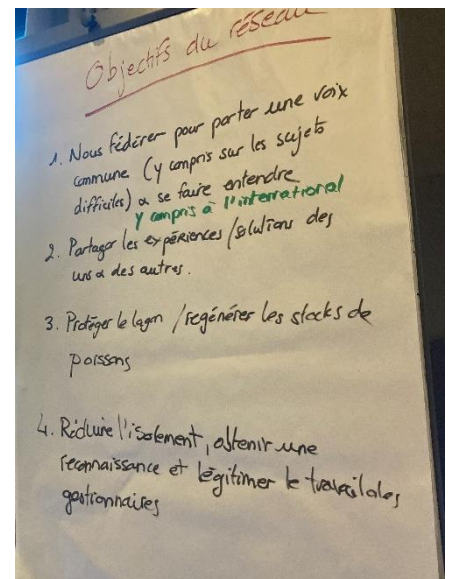 Objectifs du réseau
1. Nous fédérer pour porter une voix
commune (y compris sur les sujets
difficiles) & se faire entendre
y compris à l'international
2. Partager les expériences/solutions des
uns & des autres.
3. Protéger le lagon / régénérer les stocks de
poissons
4. Réduire l'isolement, obtenir une
reconnaissance et légitimer le travail des
gestionnaires